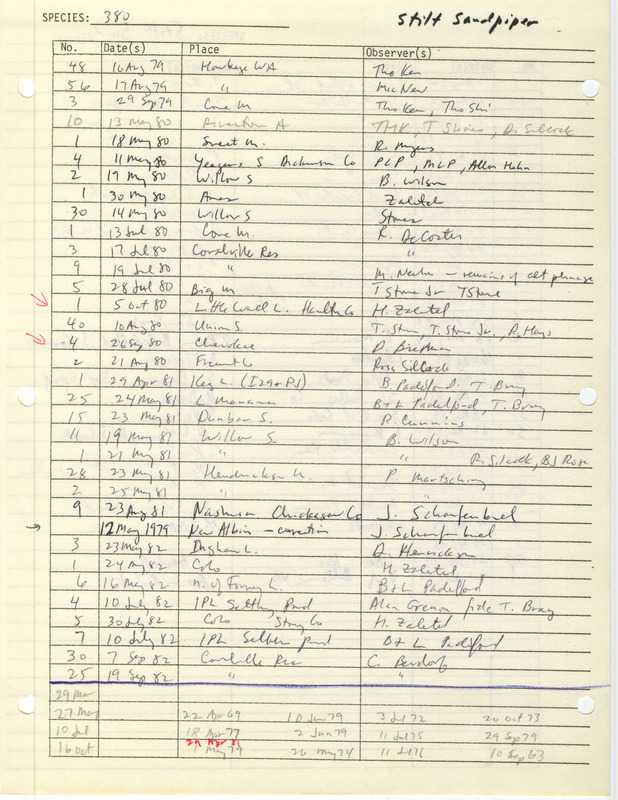 SPECIES: 380 Stilt Sandpiper
No. Date(s) Place Observer(s)
48 16 Aug 79 Hawkeye WA Tho Ken
56 17 Aug 79 " McNew
3 29 Sep 79 Cone M. Tho Ken, Tho Shi
10 13 May 80 Riverton A THK, T Shires, R. Silcock
1 18 May 80 Sweet M. R. Myers
4 11 May 80 Yeagers S Dickinson Co PLP, MLP, Allen Hahn
2 19 May 80 Willow S B. Wilson
1 30 May 80 Ames Zaletel
30 14 May 80 Willow S Stone
1 13 Jul 80 Cone M. R. DeCoster
3 17 Jul 80 Coralville Res "
9 19 Jul 80 " M. Newlon - remains of alt plumage
5 28 Jul 80 Big M T Stone Jr TStone
1 5 Oct 80 Little Wall L. Hamilton Co H. Zaletel
40 10 Aug 80 Union S. T. Stone, T. Stone Jr., R. Hays
4 26 Sep 80 Cherokee D. Bierman
2 21 Aug 80 Fremont Co Ross Silcock
1 29 Apr 81 Keg L. (I29+PJ) B Padelford, T. Bray
25 24 May 81 L Manawa B+L Padelford, T. Bray
15 23 May 81 Dunbar S. R. Cummins
11 19 May 81 Willow S. B. Wilson
1 21 May 81 " " R. Silcock, BJ Rose
28 23 May 81 Hendrickson M. P. Martsching
2 25 May 81 " "
9 23 Aug 81 Nashua Chickasaw Co J. Schaufenbuel
12 May 1979 New Albin - correction J. Schaufenbuel
3 23 May 82 Ingham L. D. Henrickson
1 24 Aug 82 Colo H. Zaletel
6 16 May 82 n. of Forney L. B+L Padelford
4 10 July 82 IPL Settling Pond Alan Grenon fide T. Bray
5 30 July 82 Colo Story Co H. Zaletel
7 10 July 82 IPL Settling pond B+L Padelford
30 7 Sep 82 Coralville Res C. Bendorf
25 19 Sep 82 " "
29 Mar
27 May 22 Apr 69 10 Jun 79 3 Jul 72 20 Oct 73
10 Jul 18 Apr 77 2 Jun 79 11 Jul 75 29 Sep 79
29 Apr 81
16 Oct 1 May 79 26 May 74 11 Jul 76 10 Sep 63